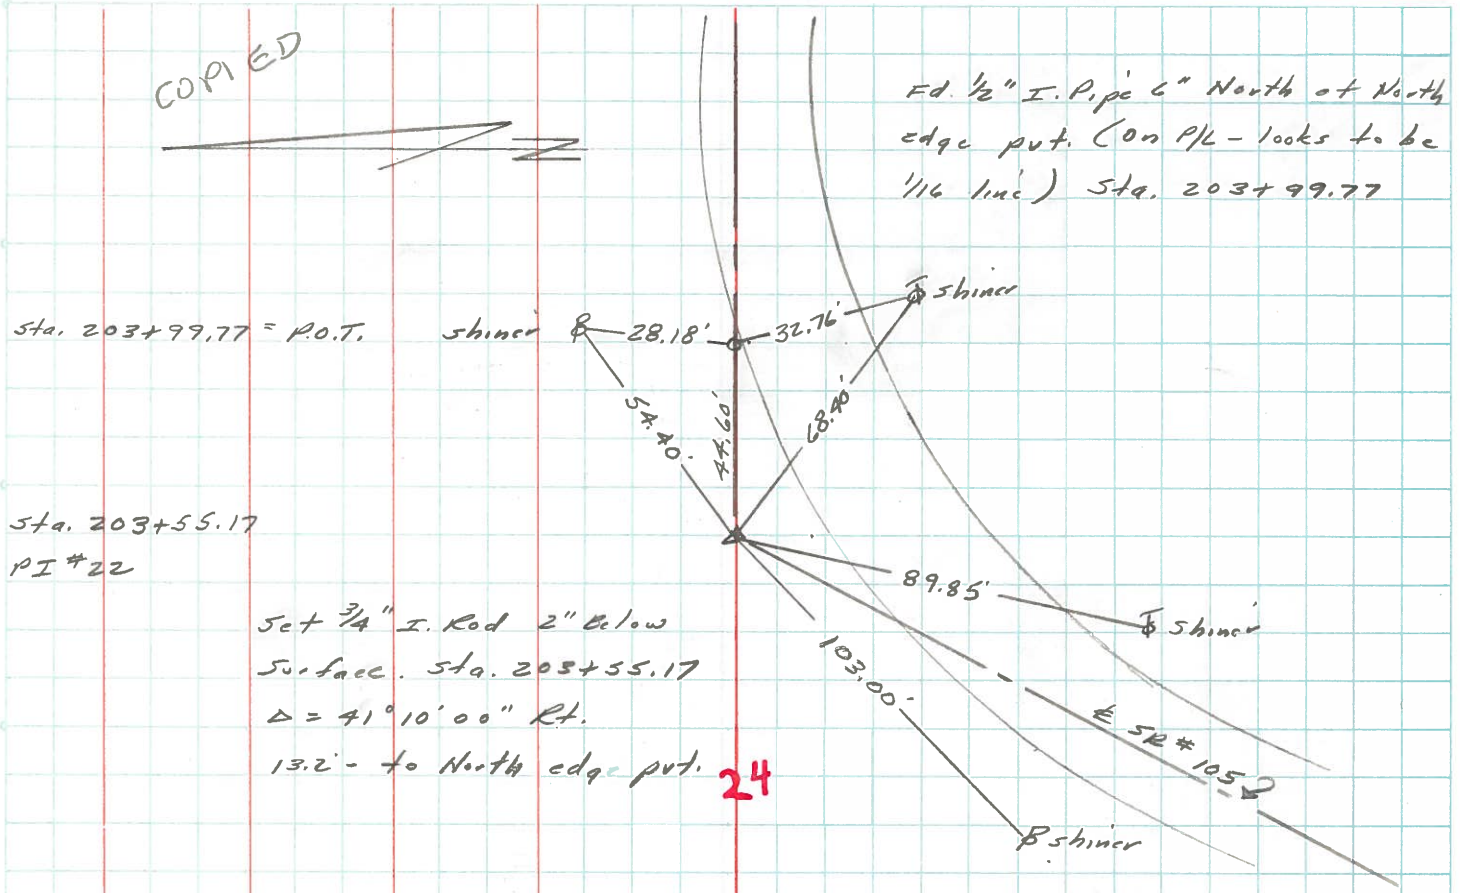 COPIED
N
Fd. 1/2" I. Pipe 6" North of North
edge pvt. (On P/L - looks to be
1/16 line) Sta. 203+99.77
shiner
sta. 203+99.77 = P.O.T.
shiner
28.18'
32.76'
54.40'
44.60'
68.40'
sta. 203+55.17
PI #22
89.85'
shiner
Set 3/4" I. Rod 2" Below
Surface. Sta. 203+55.17
Δ = 41°10'00" Rt.
13.2'- to North edge pvt.
103.00'
℄ SR # 105
24
shiner